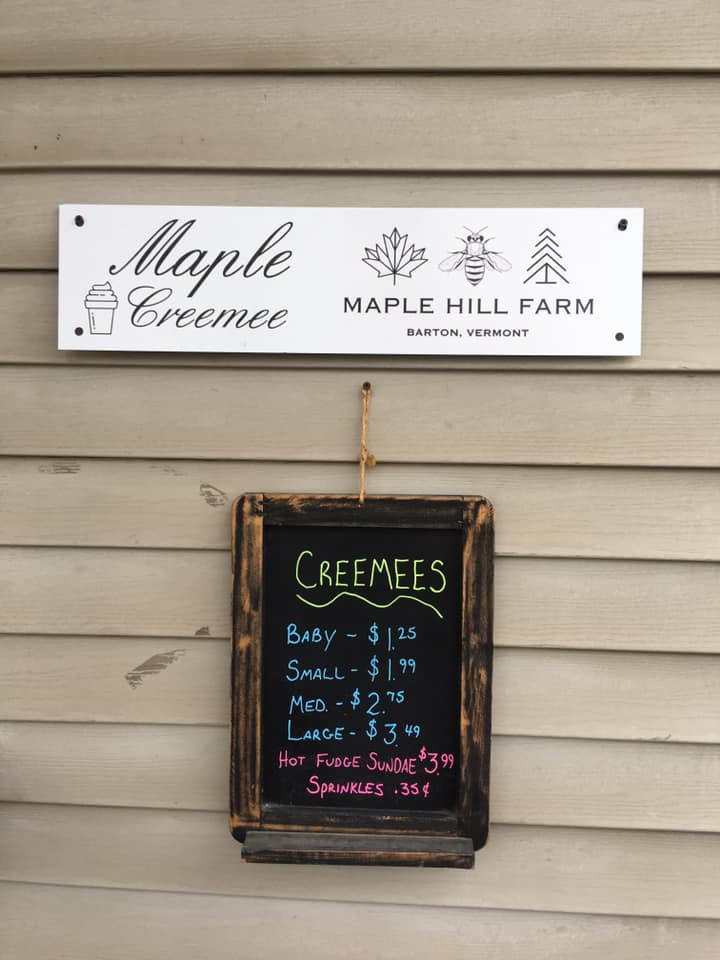 Maple
Creemee
MAPLE HILL FARM
BARTON, VERMONT
CREEMEES
BABY - $1.25
SMALL - $1.99
MED. - $2.75
LARGE - $3.49
HOT FUDGE SUNDAE $3.99
SPRINKLES .35¢